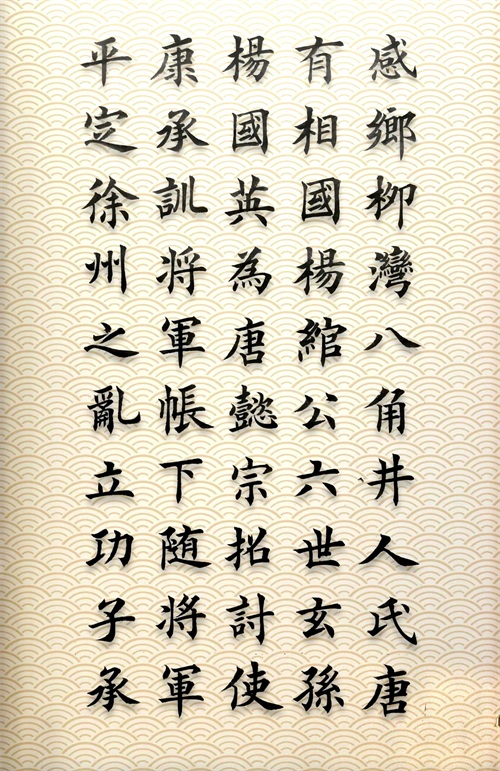 感鄉柳灣八角井人氏唐
有相國楊綰公六世玄孫
楊國英為唐懿宗招討使
康承訓將軍帳下随將軍
平定徐州之亂立功子承